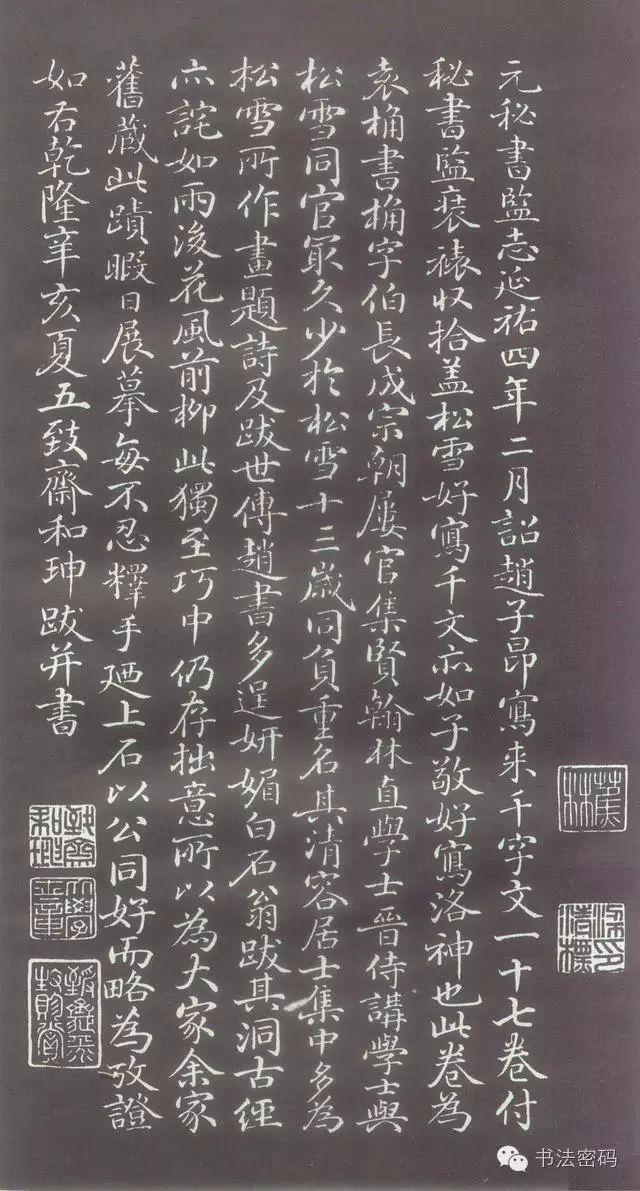 元秘書監志延祐四年二月詔趙子昂寫來千字文一十七卷付
秘書監裝裱収拾盖松雪好寫千文亦如子敬好寫洛神也此卷為
袁桷書桷字伯長成宗朝屢官集賢翰林直學士晉侍講學士與
松雪同官冣久少於松雪十三嵗同負重名其清容居士集中多為
松雪所作畫題詩及跋世傳趙書多逞妍媚白石翁跋其洞古經
亦詫如雨後花風前柳此獨至巧中仍存拙意所以為大家余家
舊藏此蹟暇日展摹每不忍釋手廼上石以公同好而略為攷證
如右乾隆辛亥夏五致齋和珅跋并書
蕉林
致齋和珅
大學士章
书法密码